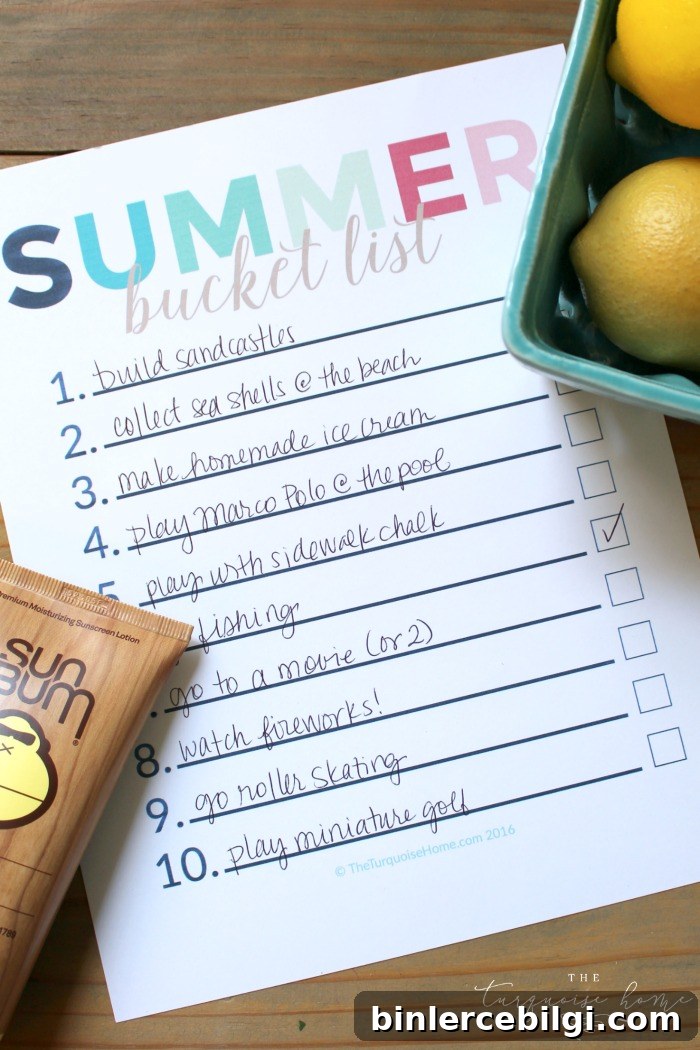 SUMMER
bucket list
1. build sandcastles
2. collect sea shells @ the beach
3. make homemade ice cream
4. play Marco Polo @ the pool
5. play with sidewalk chalk
fishing
go to a movie (or 2)
8. watch fireworks!
9. go roller skating
10. play miniature golf
© TheTurquoiseHome.com 2016
Premium Moisturizing Sunscreen Lotion
SUN
BUM
THE
turquoise home
binlercebilgi.com